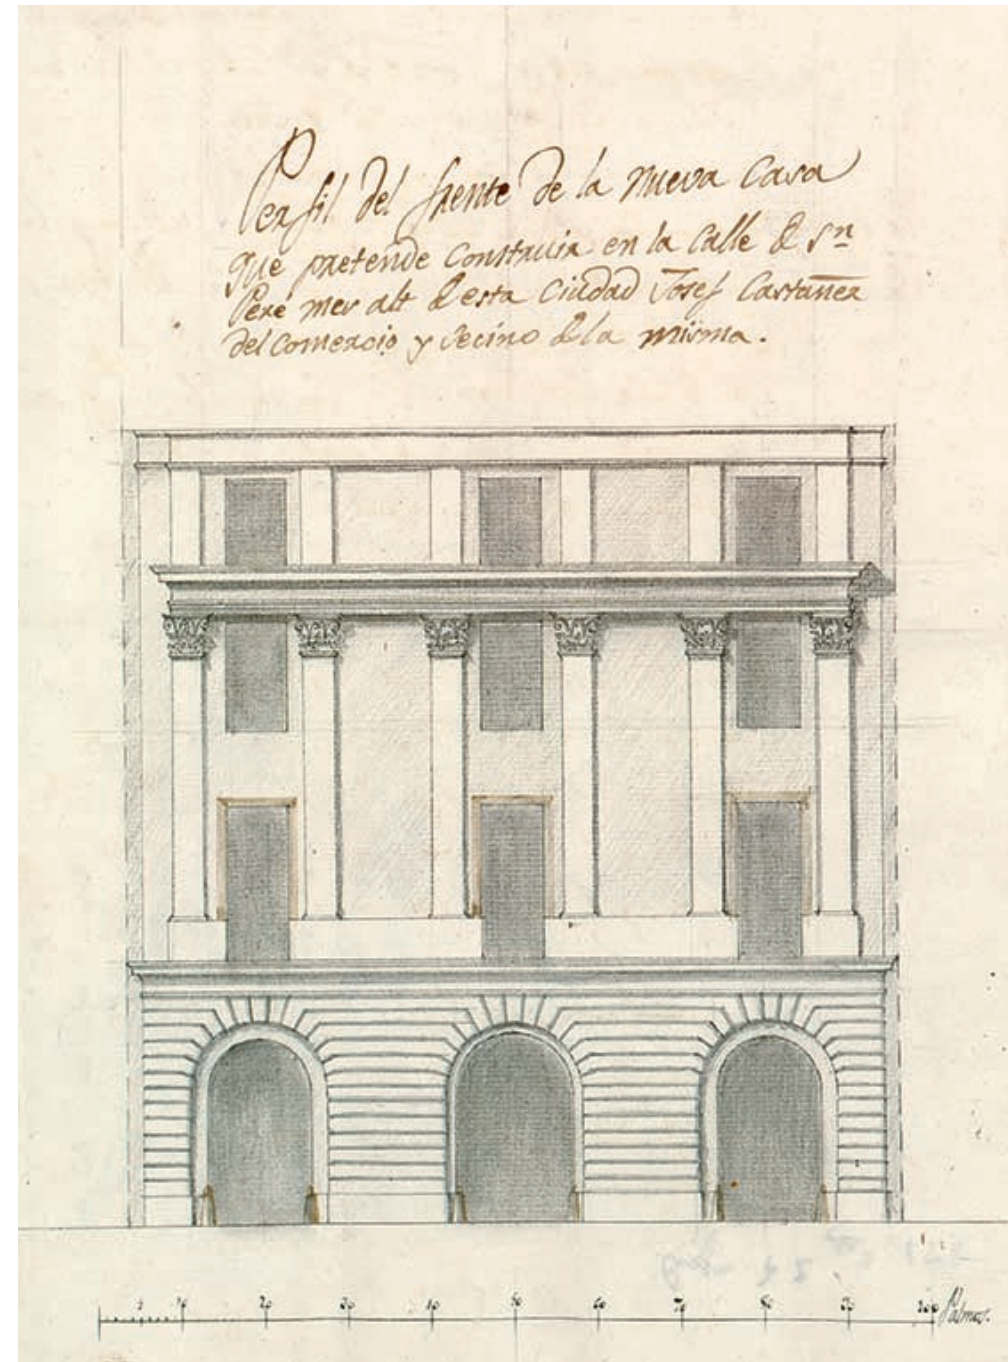 Perfil del frente de la nueva Casa
que pretende Construir en la Calle de Sn
Pere mes alt de esta Ciudad Josef Castañer
del Comercio y vecino de la misma.
5 10 20 30 40 50 60 70 80 90 100 Palmos.